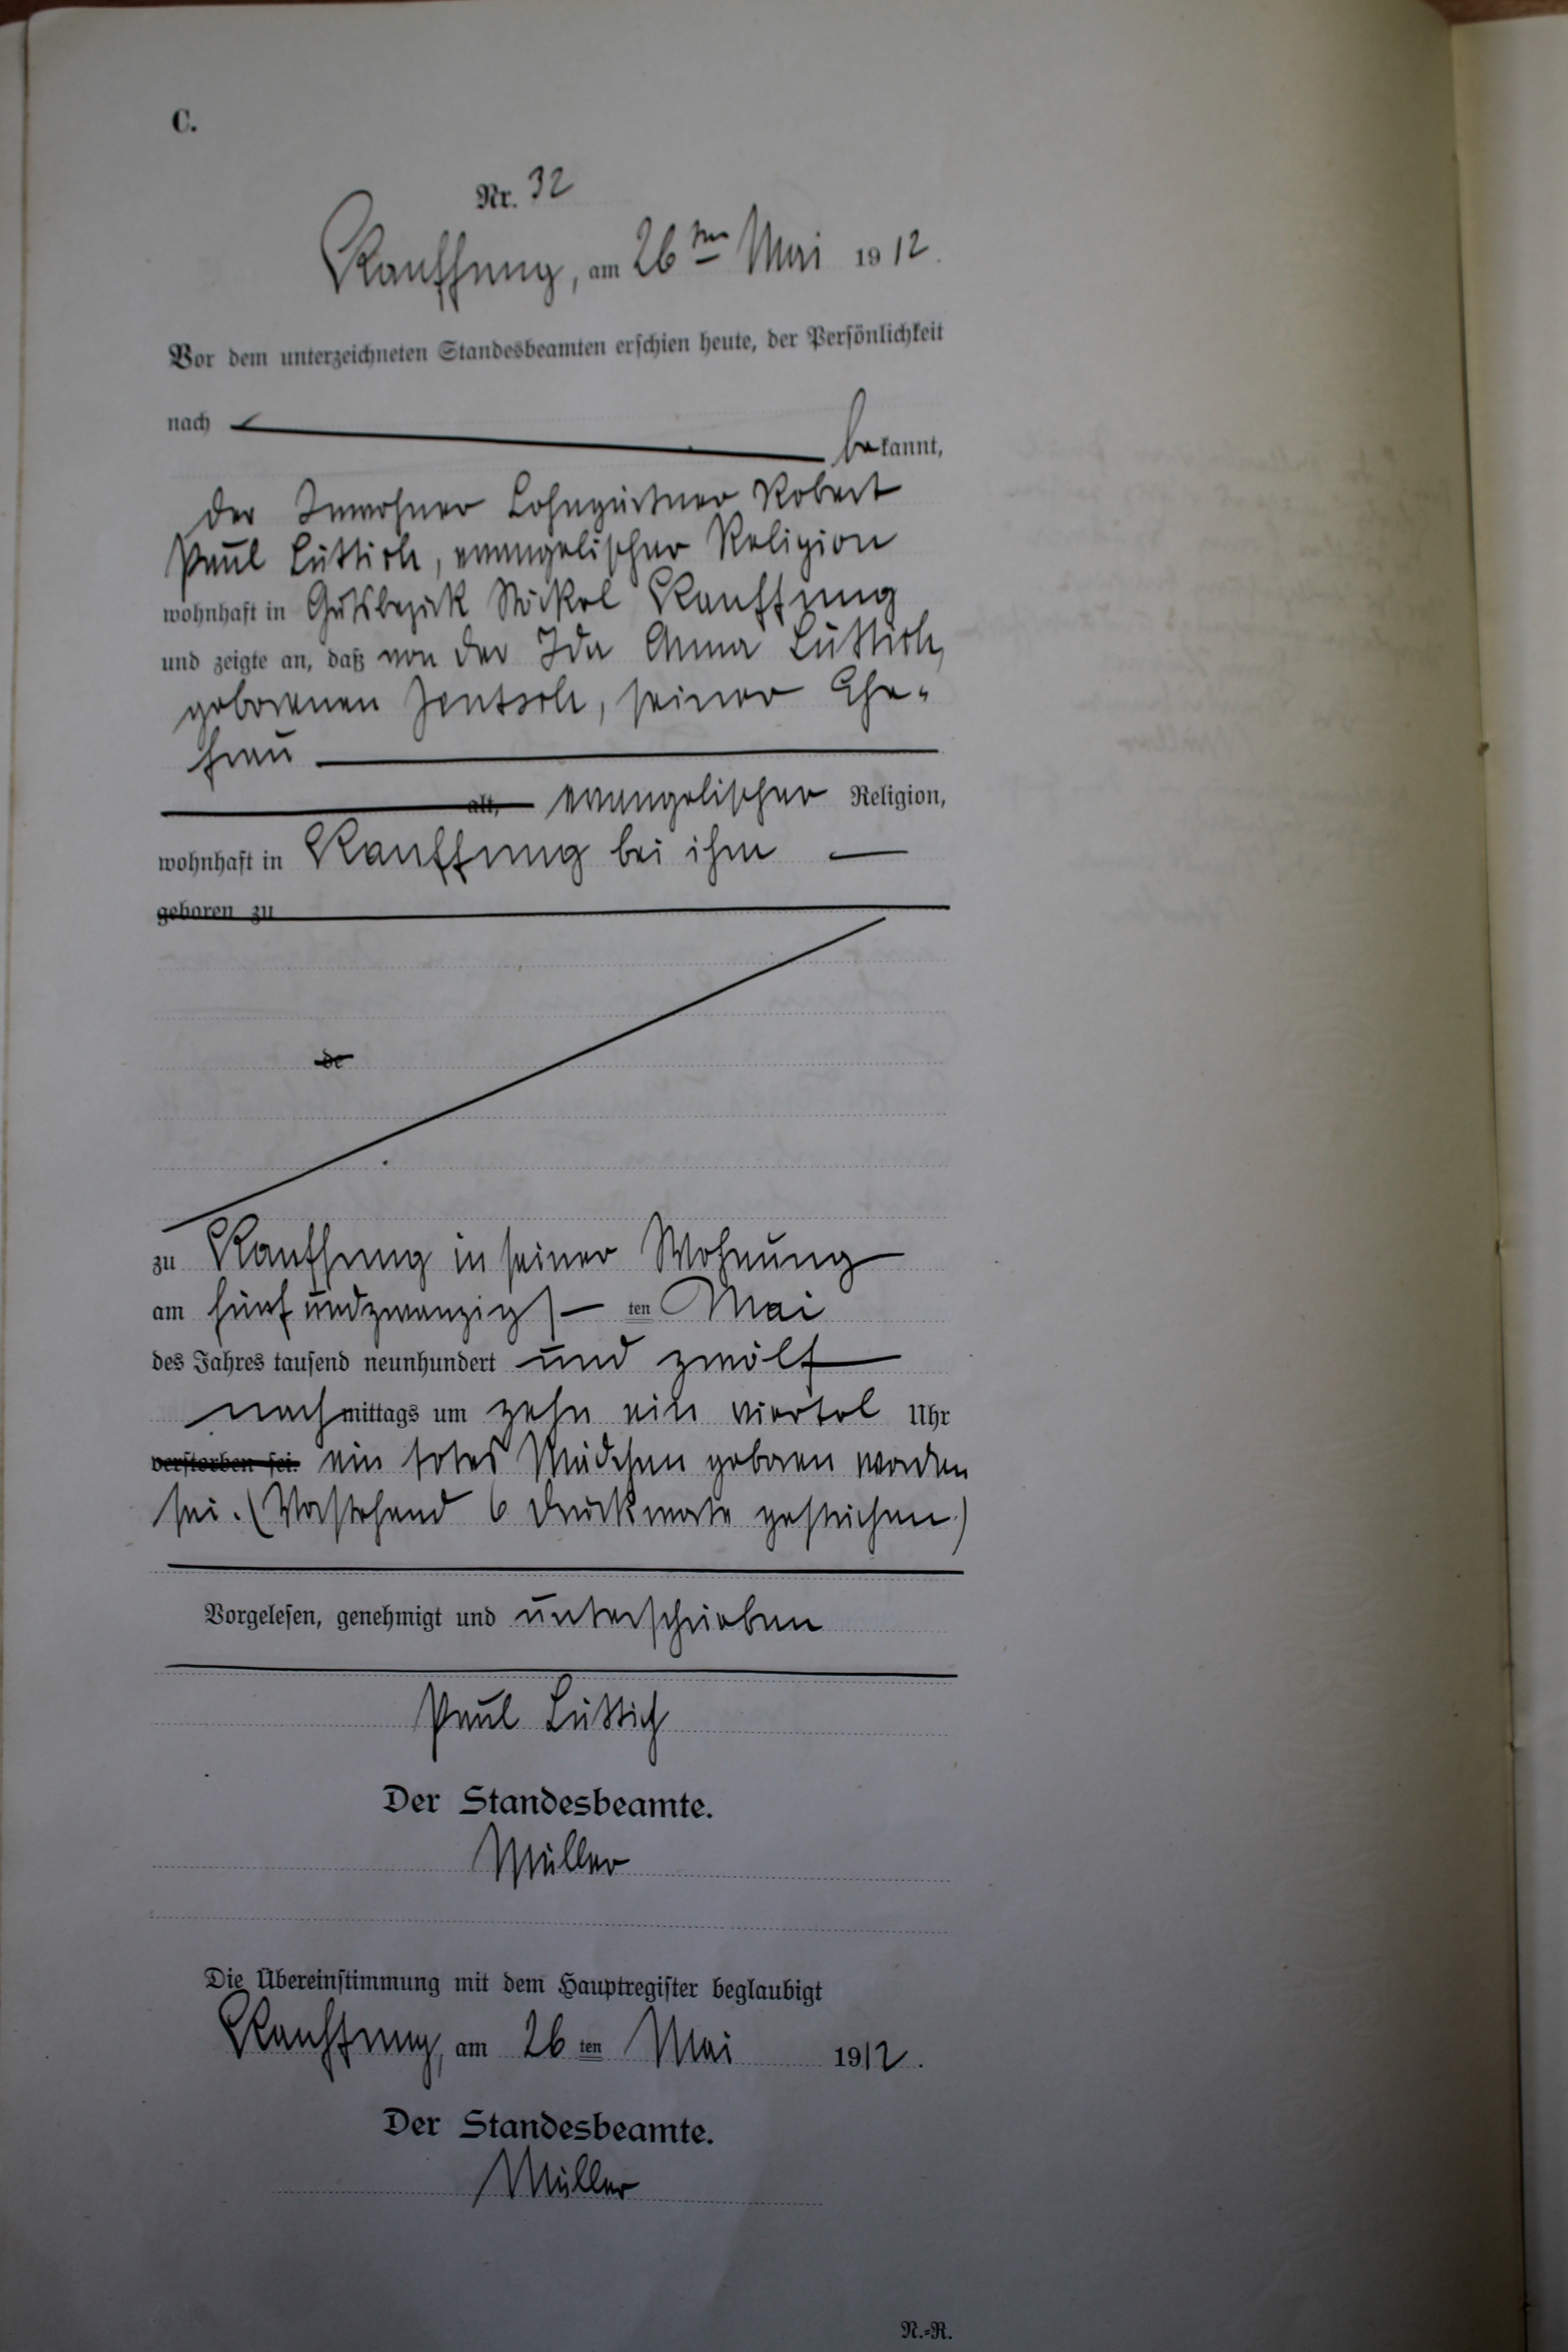 C.
Nr. 32
Kauffung, am 26ten Mai 1912.
Vor dem unterzeichneten Standesbeamten erschien heute, der Persönlichkeit
nach bekannt,
der Inwohner Lohngärtner Robert
Paul Lüttich, evangelischer Religion
wohnhaft in Gutsbezirk Stöckel Kauffung
und zeigte an, daß von der Ida Anna Lüttich,
geborenen Jentsch, seiner Ehe-
frau
alt, evangelischer Religion,
wohnhaft in Kauffung bei ihm
geboren zu
de
zu Kauffung in seiner Wohnung
am fünf und zwanzigsten Mai
des Jahres tausend neunhundert und zwölf
nachmittags um zehn ein viertel Uhr
verstorben sei. ein totes Mädchen geboren worden
sei. (Vorstehend 6 Druckworte gestrichen.)
Vorgelesen, genehmigt und unterschrieben
Paul Lüttich
Der Standesbeamte.
Müller
Die Übereinstimmung mit dem Hauptregister beglaubigt
Kauffung, am 26ten Mai 1912.
Der Standesbeamte.
Müller
N.-R.